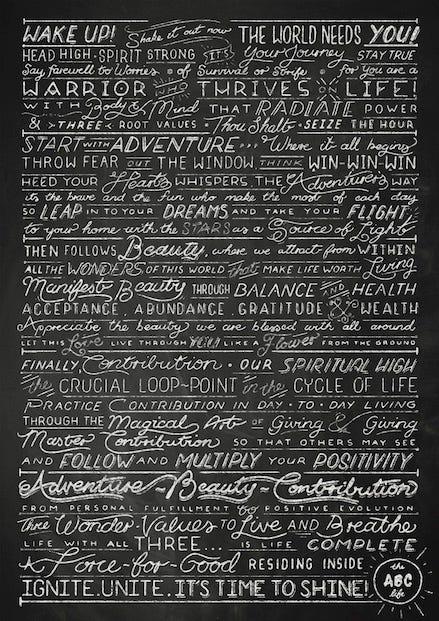 WAKE UP! Shake it out now THE WORLD NEEDS YOU!
HEAD HIGH · SPIRIT STRONG IT'S Your Journey STAY TRUE
Say farewell to Worries & of Survival or Strife for You are a
WARRIOR WHO THRIVES IN LIFE!
WITH Body & Mind THAT RADIATE POWER
& > THREE < ROOT VALUES · Thou Shalt · SEIZE THE HOUR
START WITH ADVENTURE... Where it all begins
THROW FEAR OUT THE WINDOW THINK WIN-WIN-WIN
HEED YOUR Heart's WHISPERS, THE Adventurer's WAY
its the brave and the fun who make the most of each day
SO LEAP IN TO YOUR DREAMS AND TAKE YOUR FLIGHT
to your home with the STARS as a Source of Light
THEN FOLLOWS Beauty, where we attract from WITHIN
ALL THE WONDERS OF THIS WORLD that MAKE LIFE WORTH Living
Manifest Beauty THROUGH BALANCE AND HEALTH
ACCEPTANCE, ABUNDANCE, GRATITUDE & WEALTH
Appreciate the beauty we are blessed with all around
LET THIS Love LIVE THROUGH YOU LIKE A Flower FROM THE GROUND
FINALLY, Contribution · OUR SPIRITUAL HIGH
the CRUCIAL LOOP-POINT in the CYCLE OF LIFE
PRACTICE CONTRIBUTION IN DAY · TO · DAY LIVING
THROUGH THE Magical Art OF Giving & Giving
Master Contribution SO THAT OTHERS MAY SEE
AND FOLLOW AND MULTIPLY YOUR POSITIVITY
Adventure ~ Beauty ~ Contribution
FROM PERSONAL FULFILLMENT to POSITIVE EVOLUTION
Three Wonder-Values to Live AND Breathe
LIFE WITH ALL THREE... IS LIFE COMPLETE
A Force-for-Good RESIDING INSIDE
IGNITE. UNITE. IT'S TIME TO SHINE!
the
ABC
life